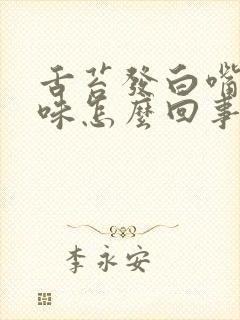 舌苔發白嘴
味怎麼回事
李永安